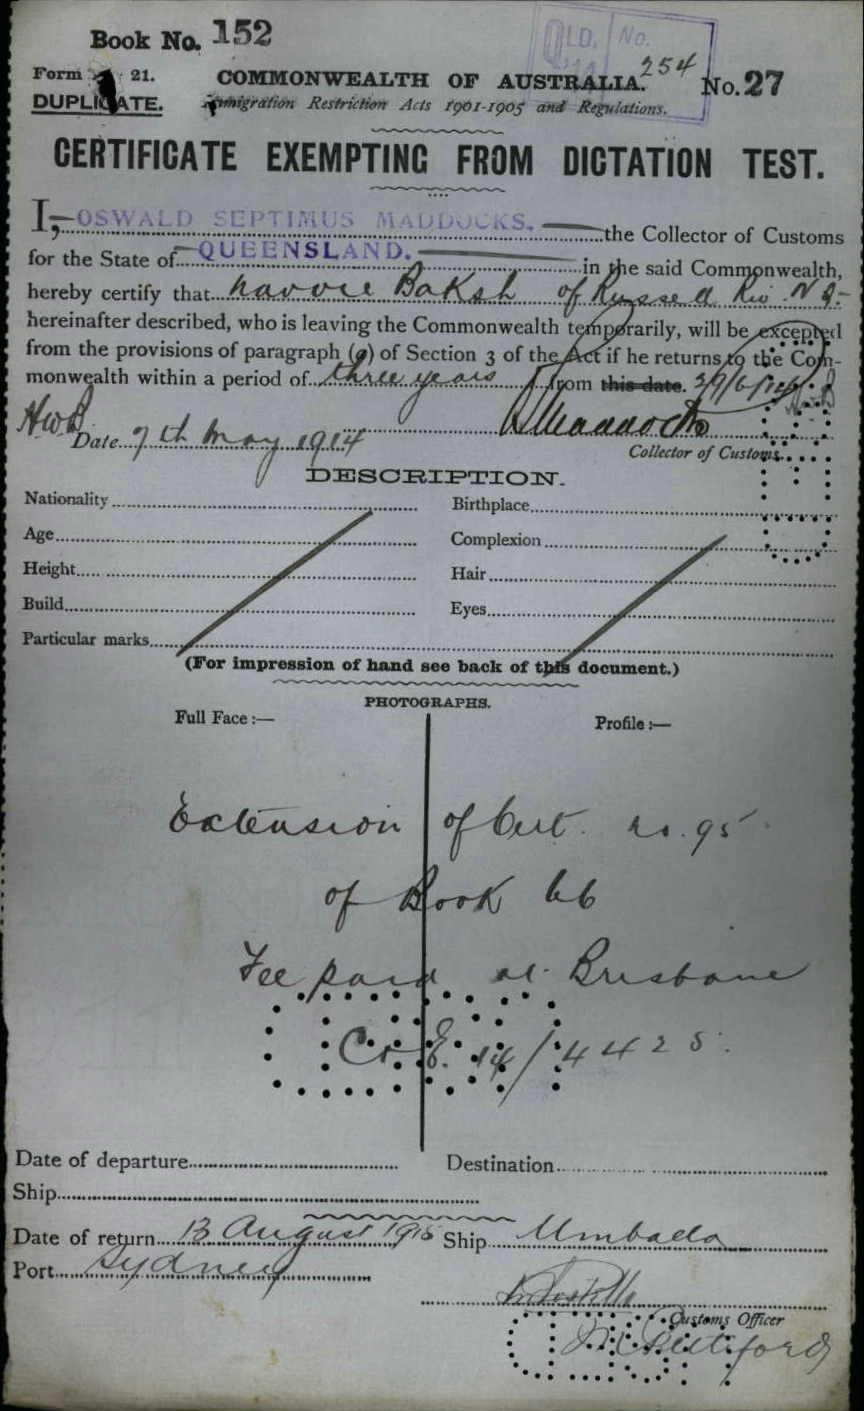 Book No. 152
QLD. No.
254
Form 21.
COMMONWEALTH OF AUSTRALIA.
No. 27
DUPLICATE.
Immigration Restriction Acts 1901-1905 and Regulations.
CERTIFICATE EXEMPTING FROM DICTATION TEST.
I, OSWALD SEPTIMUS MADDOCKS, the Collector of Customs
for the State of QUEENSLAND. in the said Commonwealth,
hereby certify that Baksh of
hereinafter described, who is leaving the Commonwealth temporarily, will be excepted
from the provisions of paragraph (a) of Section 3 of the Act if he returns to the Com-
monwealth within a period of three years from this date.
HWB
Date 7th May 1914
Collector of Customs.
DESCRIPTION.
Nationality Birthplace
Age Complexion
Height Hair
Build Eyes
Particular marks
(For impression of hand see back of this document.)
PHOTOGRAPHS.
Full Face :— Profile :—
Extension of Cert. no. 95
of Book 66
Fee paid at Brisbane
14/4425.
Date of departure Destination
Ship
Date of return 13 August 1915 Ship
Port Sydney
Customs Officer